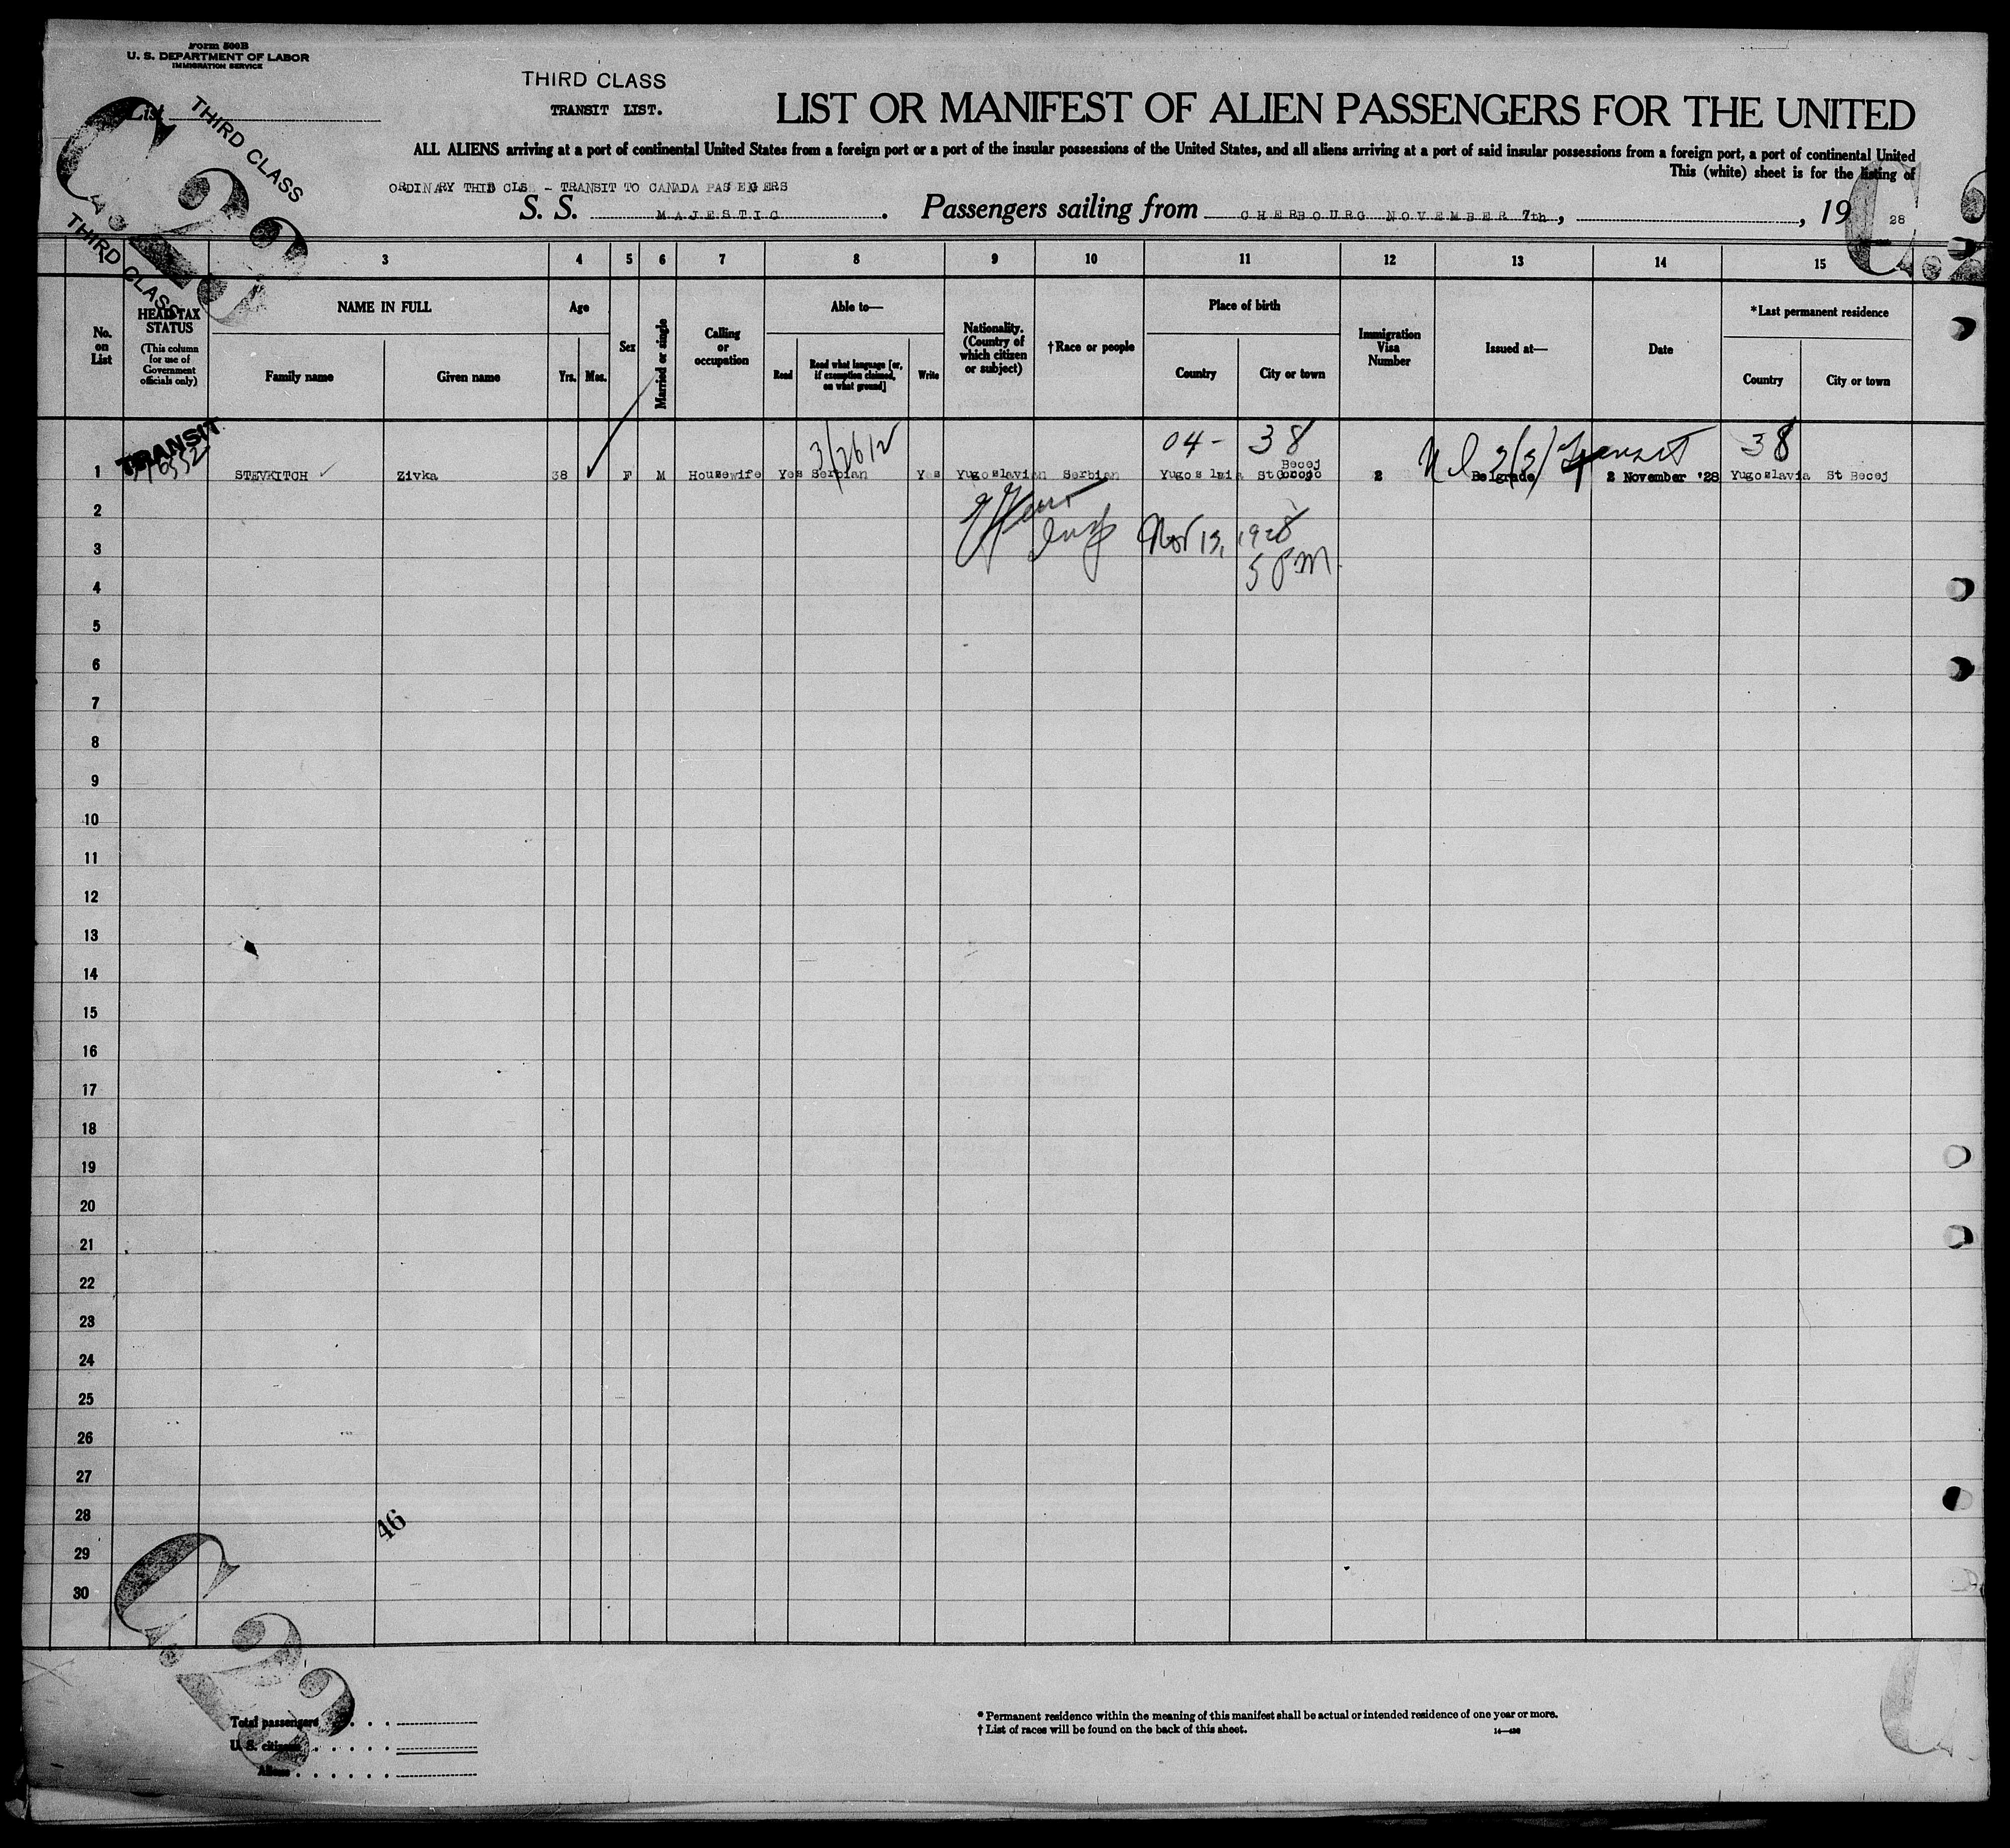 Form 500B
U. S. DEPARTMENT OF LABOR
IMMIGRATION SERVICE
THIRD CLASS
TRANSIT LIST.
LIST OR MANIFEST OF ALIEN PASSENGERS FOR THE UNITED
List
THIRD CLASS
THIRD CLASS
ALL ALIENS arriving at a port of continental United States from a foreign port or a port of the insular possessions of the United States, and all aliens arriving at a port of said insular possessions from a foreign port, a port of continental United
This (white) sheet is for the listing of
ORDINARY THID CLS - TRANSIT TO CANADA PASENGERS
S. S. MAJESTIC. Passengers sailing from CHERBOURG NOVEMBER 7th, , 19 28
1 3 4 5 6 7 8 9 10 11 12 13 14 15
No. on List
HEAD-TAX STATUS
(This column for use of Government officials only)
NAME IN FULL
Family name
Given name
Age
Yrs. Mos.
Sex
Married or single
Calling or occupation
Able to—
Read
Read what language [or, if exemption claimed, on what ground]
Write
Nationality. (Country of which citizen or subject)
†Race or people
Place of birth
Country
City or town
Immigration Visa Number
Issued at—
Date
*Last permanent residence
Country
City or town
TRANSIT
04- 38 Transit 38
Becej
1 STEVKITCH Zivka 38 F M Housewife Yes Serbian Yes Yugoslavian Serbian Yugoslaia St 2 Belgrade 2 November '28 Yugoslavia St Becej
2
Nov 13, 1928
3
5 PM
4
5
6
7
8
9
10
11
12
13
14
15
16
17
18
19
20
21
22
23
24
25
26
27
28
46
29
30
Total passengers . . . .
U. S. citizens . . . . . .
Aliens . . . . . .
* Permanent residence within the meaning of this manifest shall be actual or intended residence of one year or more.
† List of races will be found on the back of this sheet.